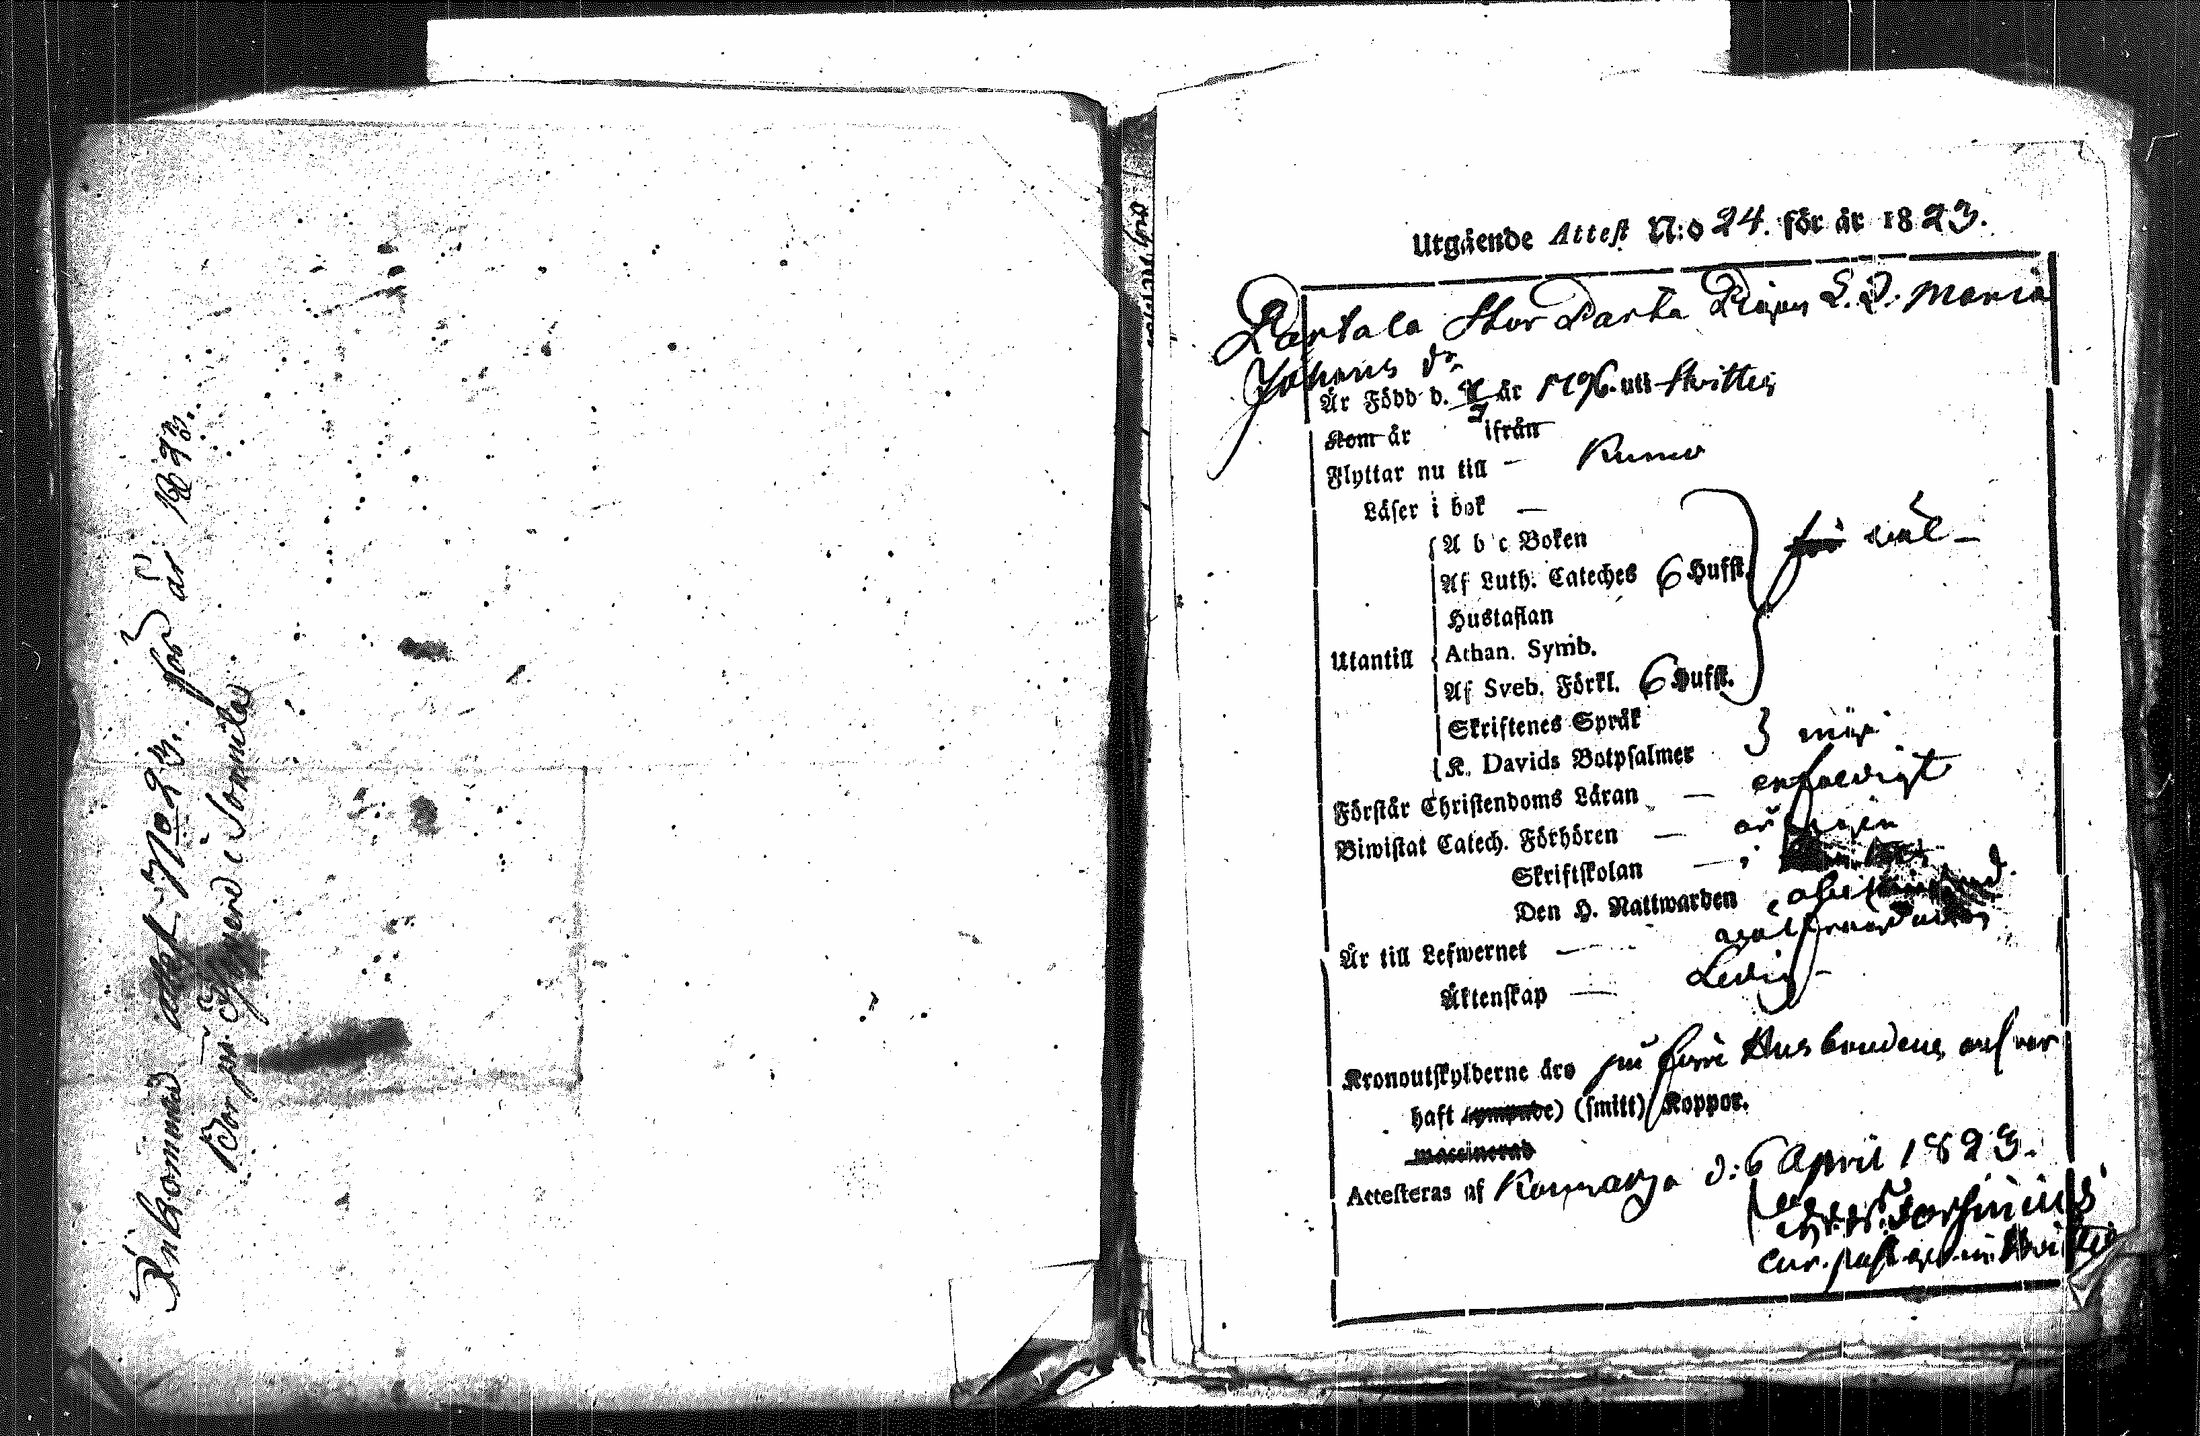 Inkommit attest No 23. för år 1823.
Bor på Thyerd i Sonnila
Utgående Attest N:o 24. för år 1823.
Partala Stor Parta Pigan L. D. Maria
Johans dr
Är Född d. år 1796. uti Huittis
Kom år ifrån
Flyttar nu till — Kumo
Läser i bok —
A b c Boken
Af Luth. Cateches 6 Hufst. wäl —
Hustaflan
Utantill Athan. Symb.
Af Sveb. Förkl. 6 Hufst.
Skriftenes Språk
K. Davids Botpsalmer
Förstår Christendoms Läran — enfaldigt
Biwistat Catech. Förhören — årligen
Skriftskolan —
Den H. Nattwarden
Är till Lefwernet —
Äktenskap — Ledig —
Kronoutskylderne äro på förra Husbondens
haft (ympade) (smitt) Koppor.
vaccinerad
Attesteras af d: 6 April 1823.